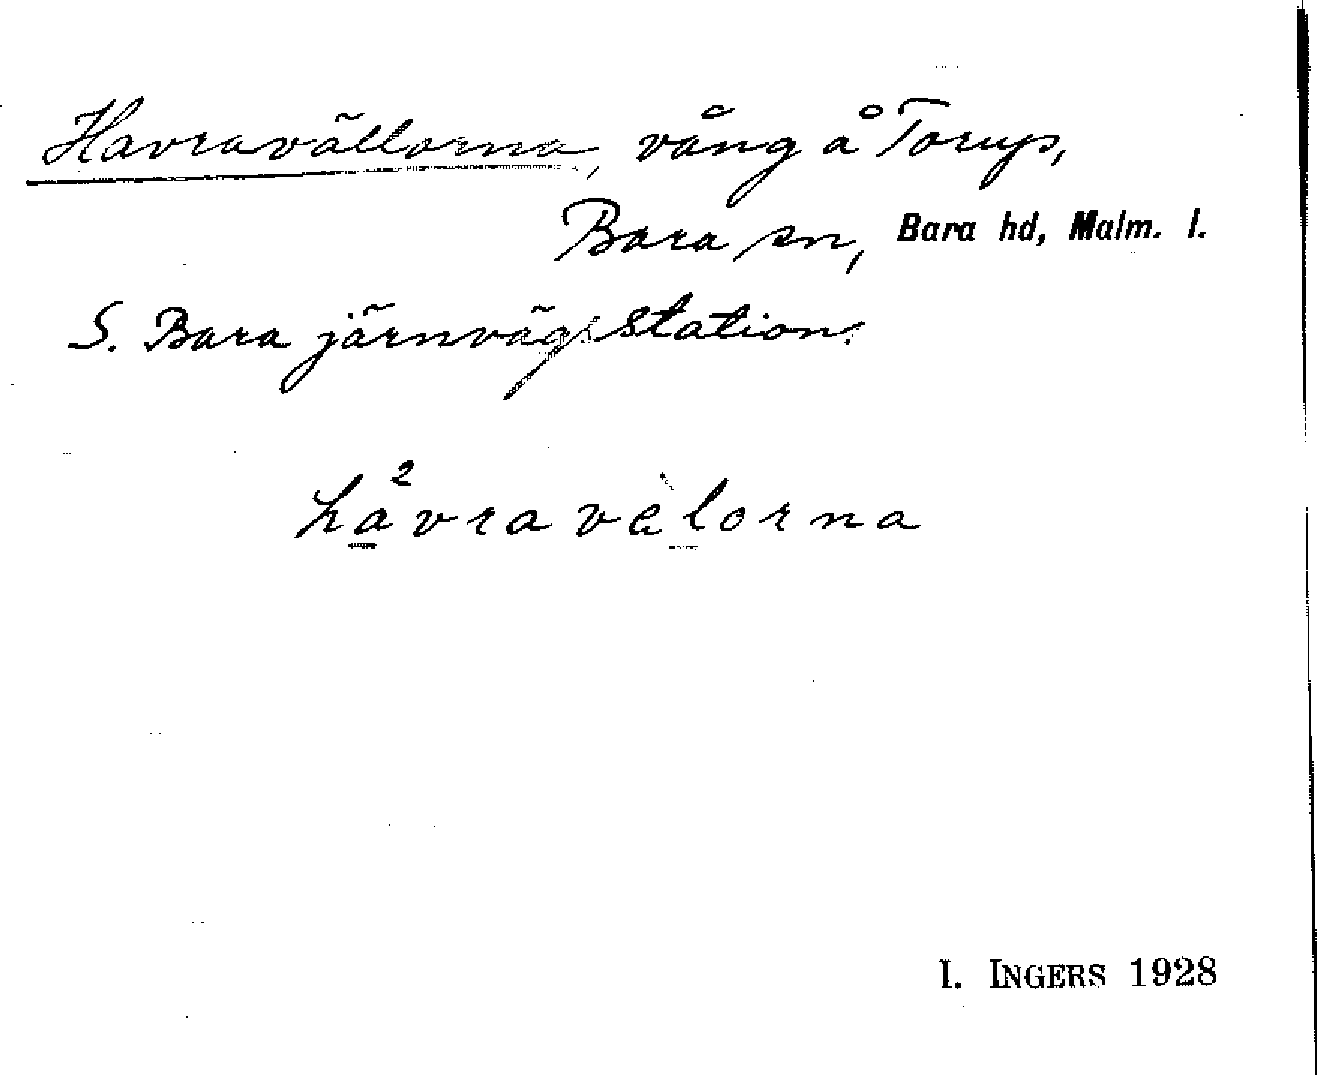 Havravällorna, vång å Torup,
Bara sn, Bara hd, Malm. l.
S. Bara järnvägsstation.
hå²vravèlorna
I. INGERS 1928